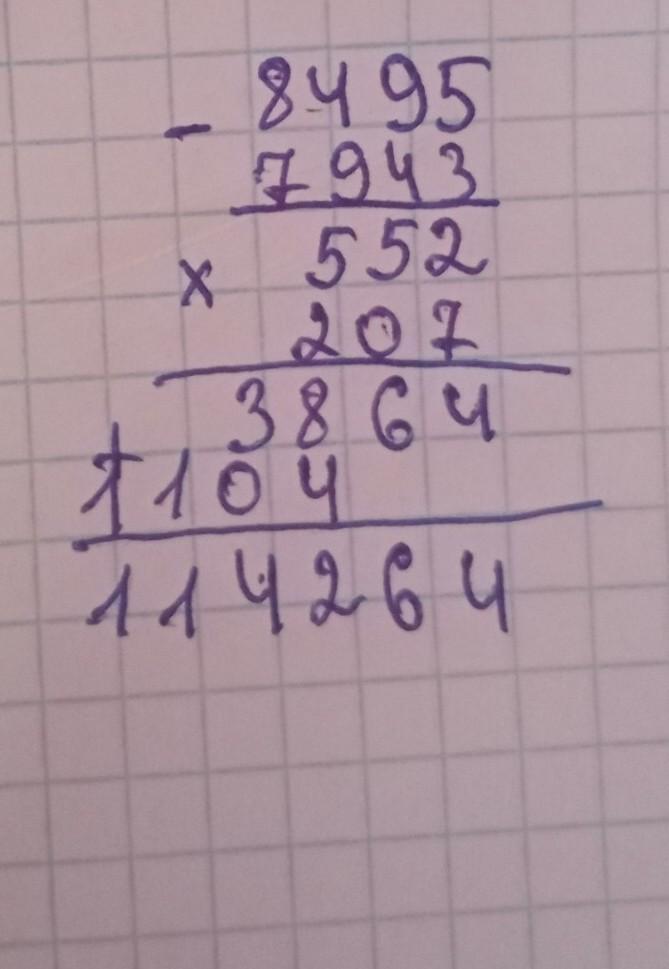 - 8495
7943
x 552
207
3864
+
1104
114264